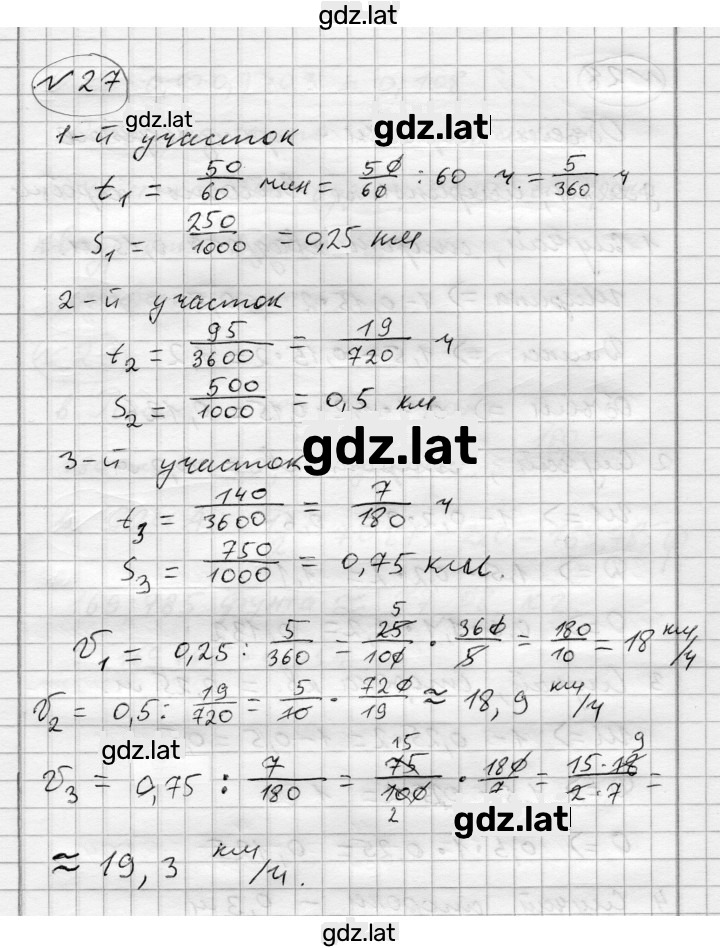 gdz.lat
№27
gdz.lat
gdz.lat
1-й участок
t₁ = 50/60 мин = 50/60 : 60 ч. = 5/360 ч
S₁ = 250/1000 = 0,25 км
2-й участок
t₂ = 95/3600 = 19/720 ч
S₂ = 500/1000 = 0,5 км
3-й участок
gdz.lat
t₃ = 140/3600 = 7/180 ч
S₃ = 750/1000 = 0,75 км.
V₁ = 0,25 : 5/360 = 25/100 · 360/5 = 180/10 = 18 км/ч
V₂ = 0,5 : 19/720 = 5/10 · 720/19 ≈ 18,9 км/ч
gdz.lat
V₃ = 0,75 : 7/180 = 75/100 · 180/7 = 15·18/2·7 =
gdz.lat
≈ 19,3 км/ч.
gdz.lat